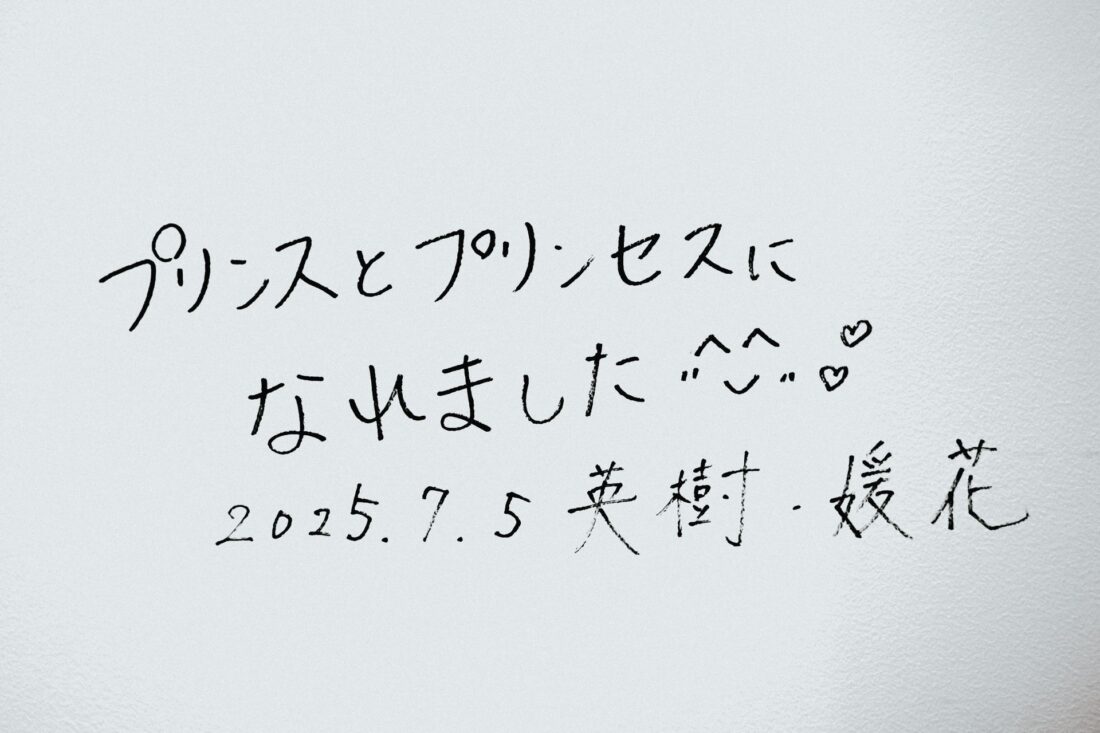 プリンスとプリンセスに
なれました "^‿^" ♡♡
2025.7.5 英樹・媛花